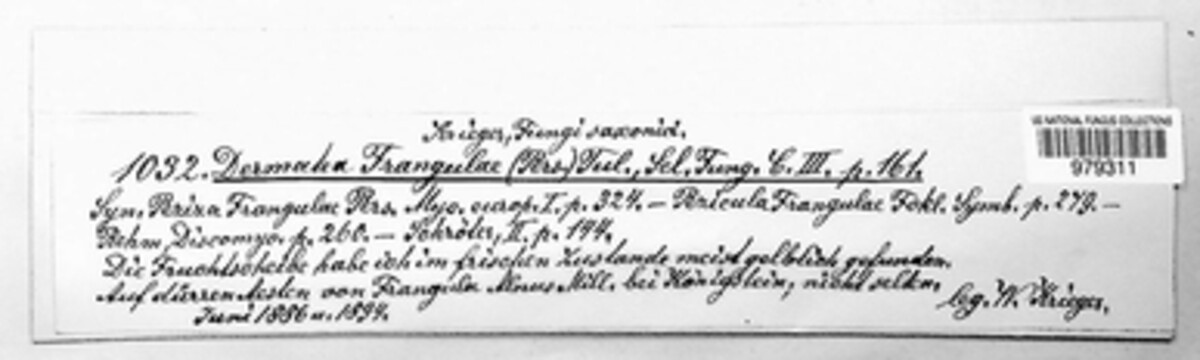 Krieger, Fungi saxonici.
US NATIONAL FUNGUS COLLECTIONS
979311
1032. Dermatea Frangulae (Prs.) Tul., Sel. Fung. C. III. p. 161.
Syn. Peziza Frangulae Prs. Myc. europ. I. p. 324. — Pezicula Frangulae Fckl. Symb. p. 279. —
Rehm, Discomyc. p. 260. — Schröter, II. p. 144.
Die Fruchtscheibe habe ich im frischen Zustande meist gelblich gefunden.
Auf dürren Aesten von Frangula Alnus Mill. bei Königstein, nicht selten.
Juni 1886 u. 1894.
leg. W. Krieger.